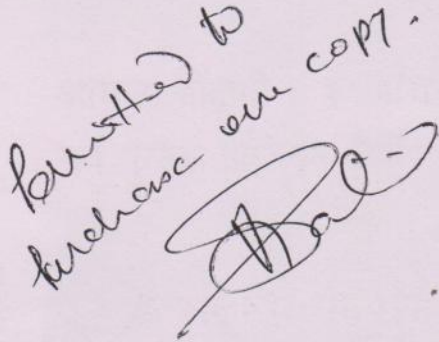 Permitted to
purchase one copy.